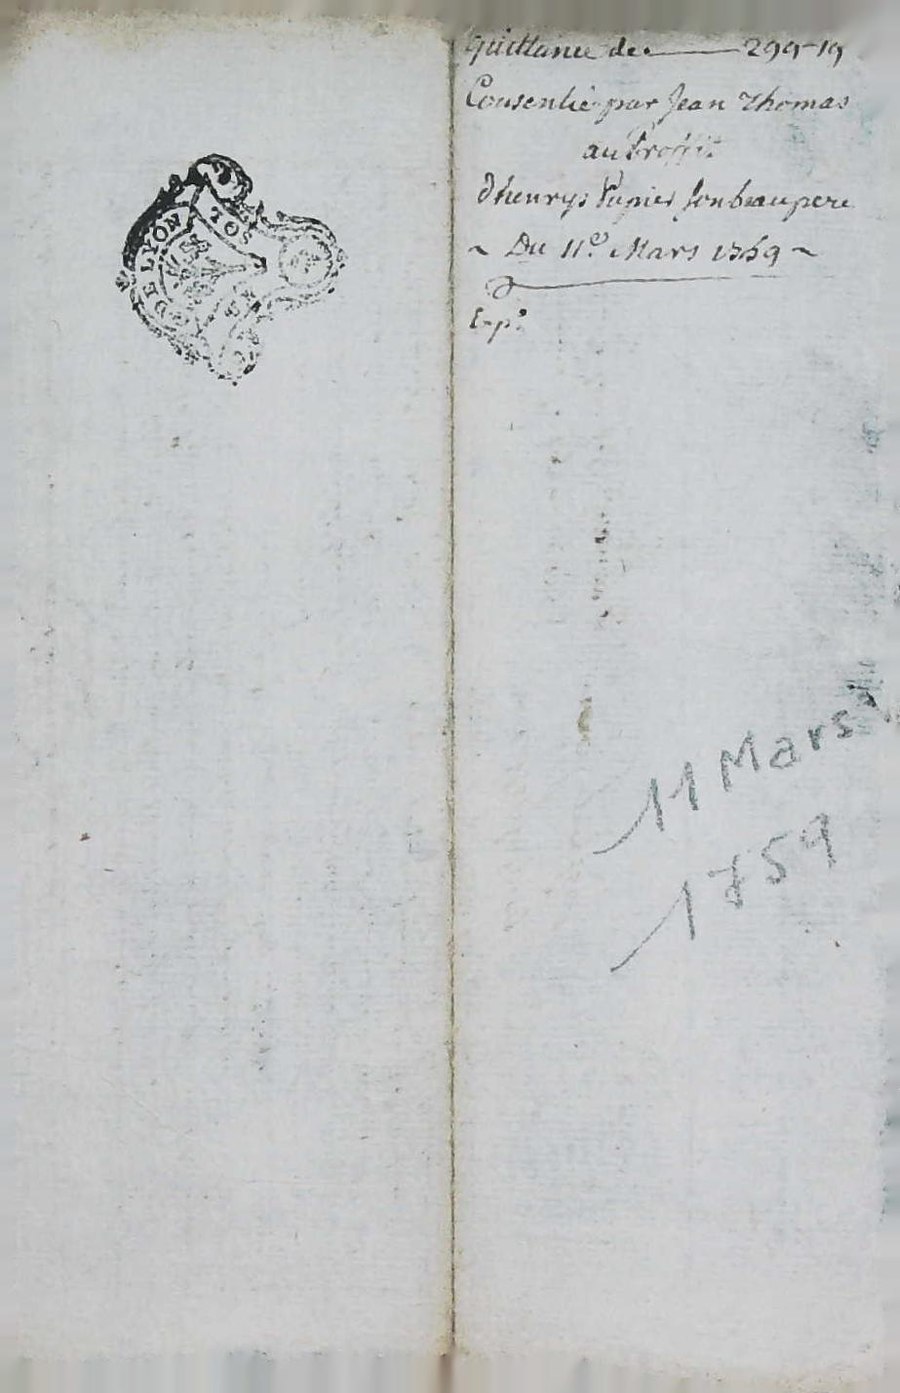 DE LYON
TOS
SIX
quittance de 299-19
Consentie par Jean Thomas
au Proffit
d'henrys Papier son beau pere
~ Du 11e. Mars 1759 ~
Exp.
11 Mars
1759